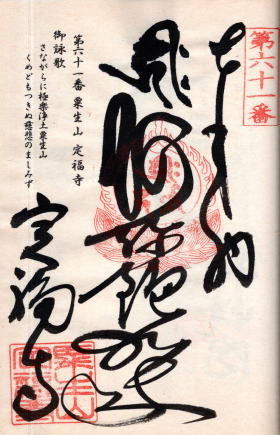 第六十一番
奉拝
阿弥陀如来
定福寺
第六十一番 粟生山 定福寺
御詠歌
さながらに極楽浄土粟生山
くめどもつきぬ慈悲のましみず